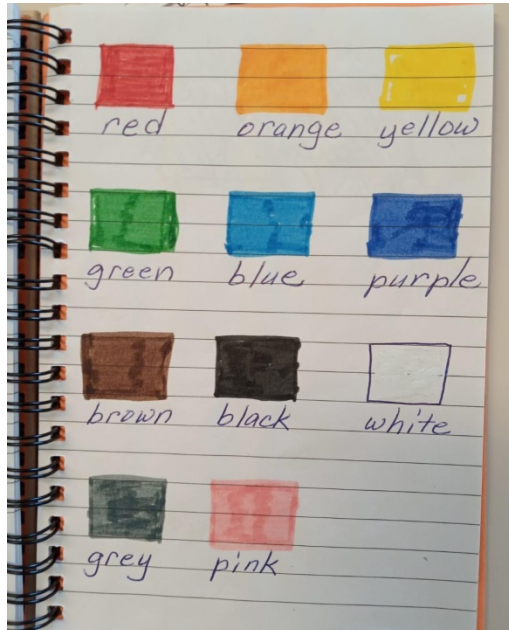 red orange yellow
green blue purple
brown black white
grey pink